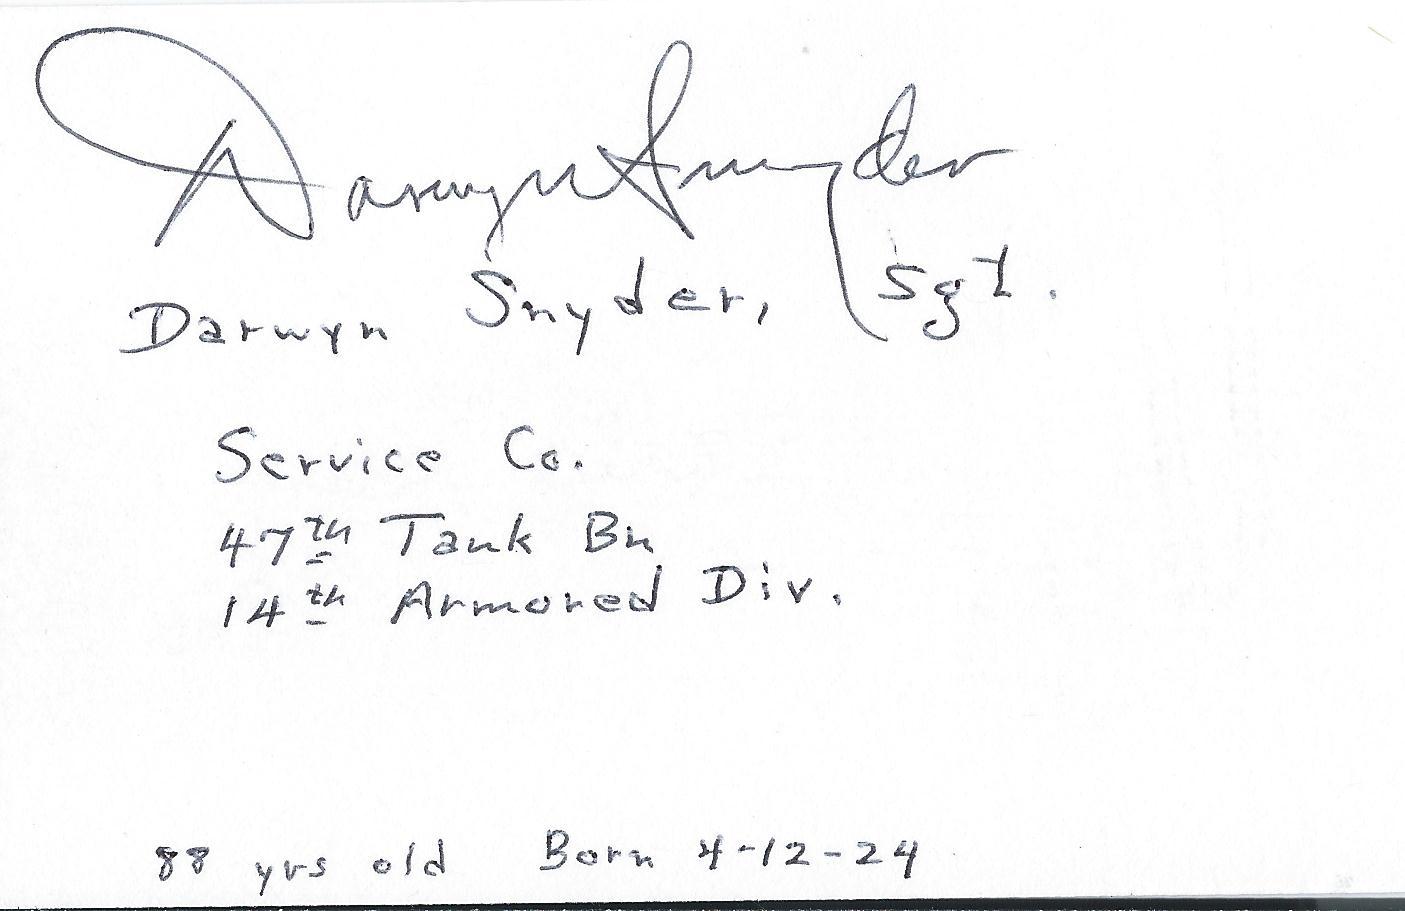 Darwyn Snyder
Darwyn Snyder, Sgt.
Service Co.
47th Tank Bn
14th Armored Div.
88 yrs old Born 4-12-24